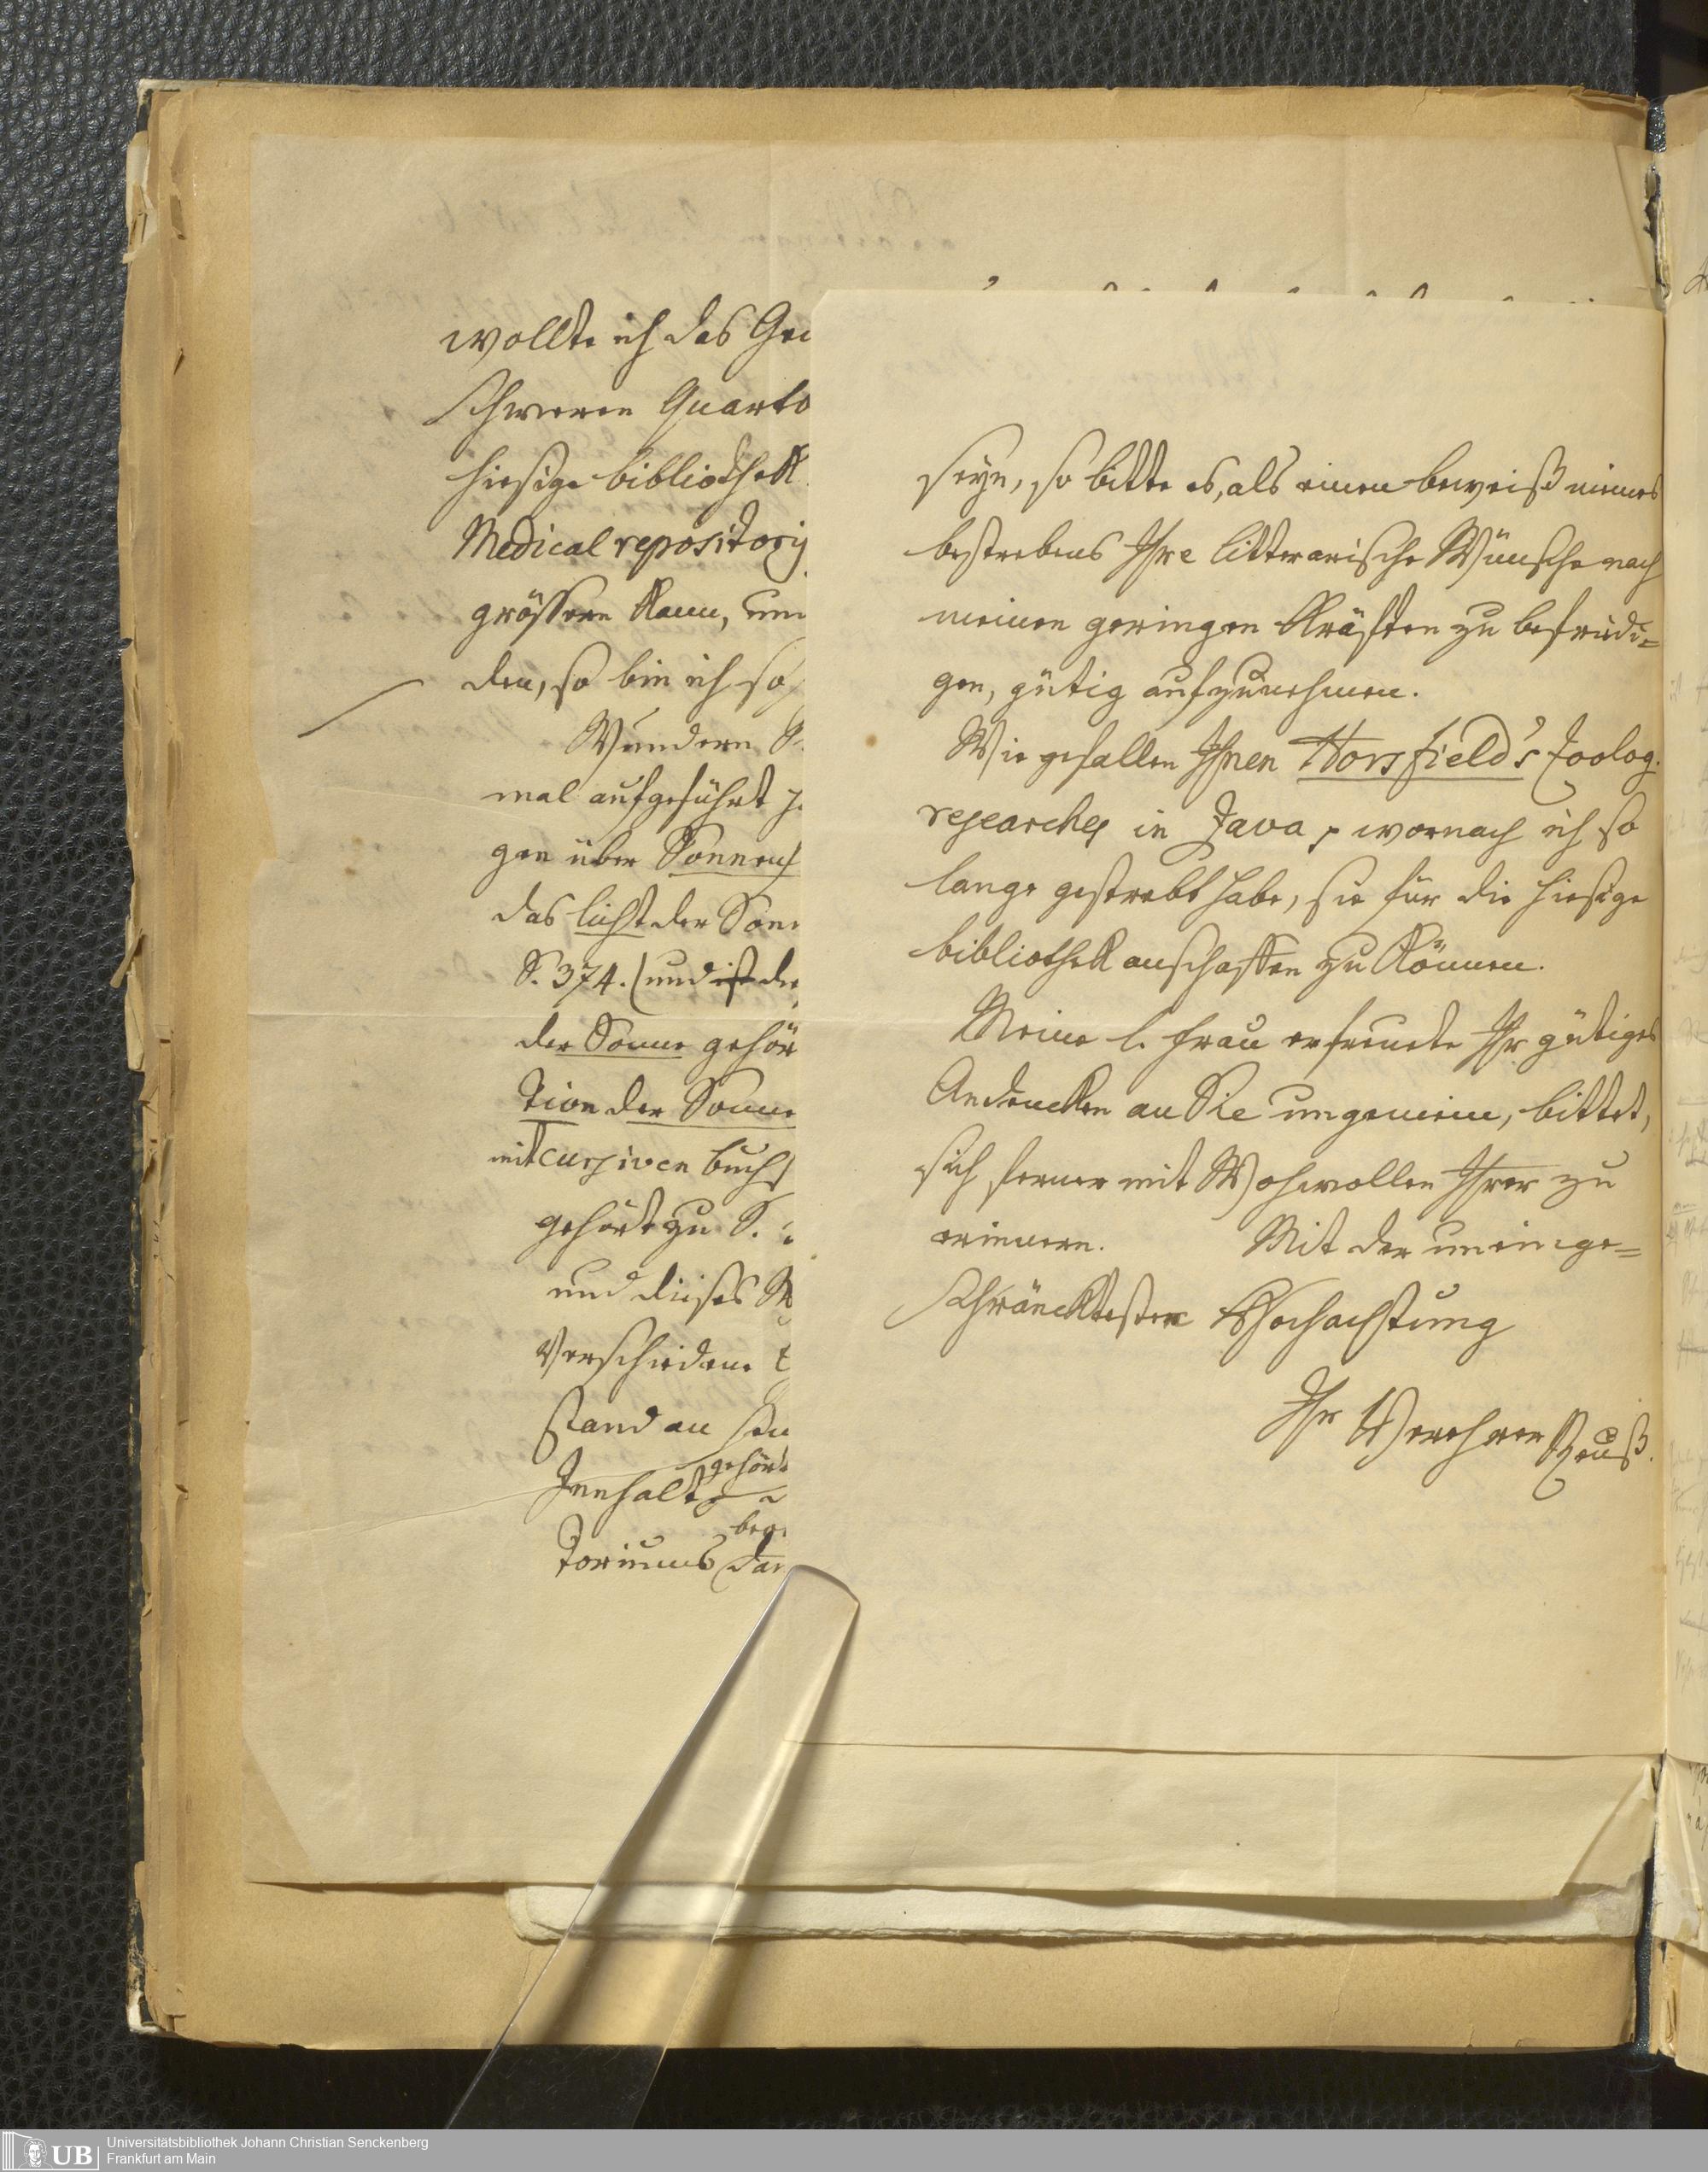 wollte ich das
schweren Quarto
hiesige bibliothek
Medical repository
grössern kann,
den, so bin ich so
Wundern
mal aufgeführt
gen über
das licht der
S. 374. (und ist
der Sonne gehör
tion der Sonne
mit cursiven buchs
gehört zu S.
und dieses
Verschiedene
stand an
gehört
Innhalt
toriums
seyn, so bitte es, als einen beweiß meines
bestrebens Ihre litterarische Wünsche nach
meinen geringen Kräften zu befriedi=
gen, gütig aufzunehmen.
Wie gefallen Ihnen Horsfield's Zoolog.
researches in Java, wornach ich so
lange gestrebt habe, sie für die hiesige
bibliothek anschaffen zu können.
Meine l. frau erfreuete Ihr gütiges
Andencken an Sie ungemein, bittet,
sich ferner mit Wohwollen Ihrer zu
erinnern. Mit der uneinge=
schräncktesten Hochachtung
Ihr Verehrer Reuß.
UB Universitätsbibliothek Johann Christian Senckenberg
Frankfurt am Main